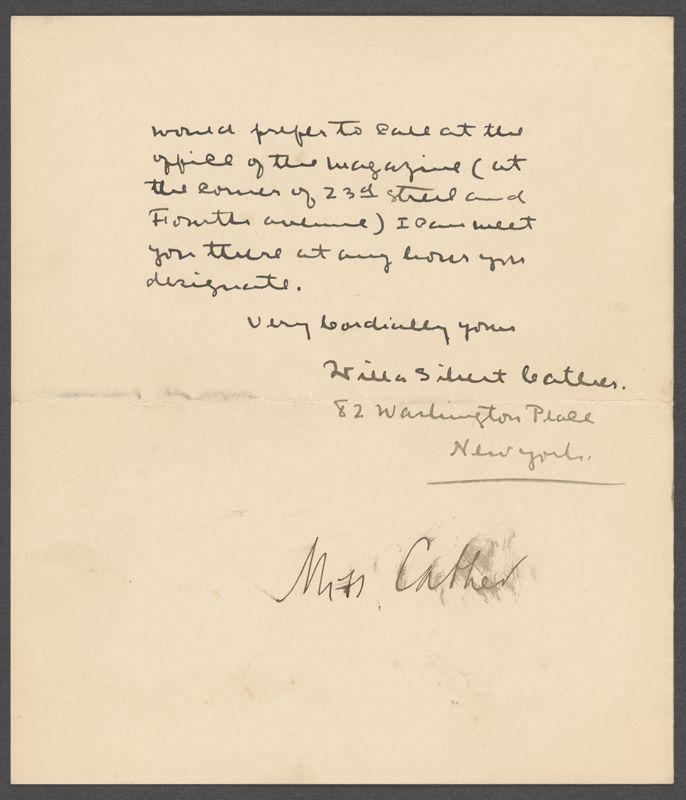 would prefer to call at the
office of the magazine (at
the corner of 23d street and
Fourth avenue) I can meet
you there at any hour you
designate.
Very Cordially yours
Willa Sibert Cather.
82 Washington Place
New York.
Miss Cather